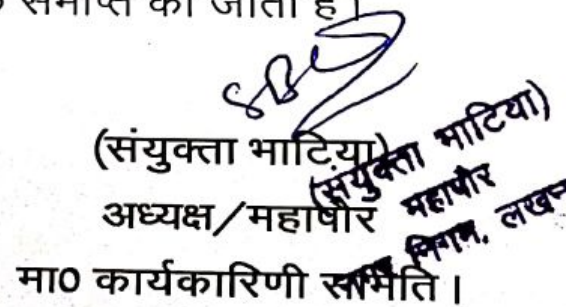 समाप्त की जाती है।
(संयुक्ता भाटिया)
अध्यक्ष/महापौर
मा0 कार्यकारिणी समिति।
(संयुक्ता भाटिया)
महापौर
नगर निगम, लखन